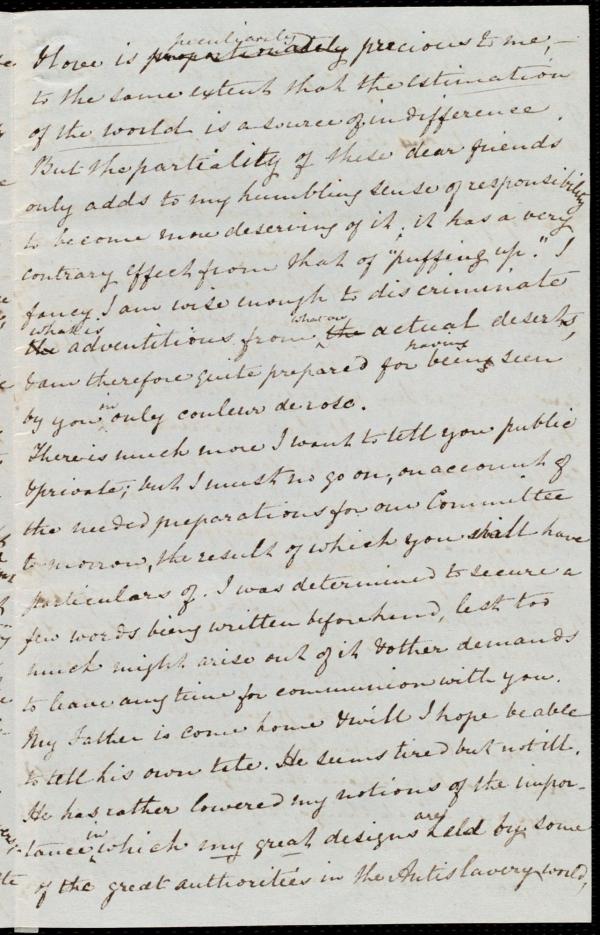 & love is peculiarly proportionately precious to me,—
to the same extent that the estimation
of the world is a source of indifference.
But the partiality of these dear friends
only adds to my humbling sense of responsibility
to become more deserving of it; it has a very
contrary effect from that of "puffing up." I
fancy I am wise enough to discriminate
what is the adventitious from what are the actual deserts,
& am therefore quite prepared for having been seen
by you in only couleur de rose.
There is much more I want to tell you public
& private; but I must no go on, on account of
the needed preparations for our Committee
tomorrow, the result of which you shall have
particulars of. I was determined to secure a
few words being written beforehand, lest too
much might arise out of it & other demands
to leave any time for communion with you.
My Father is come home & will I hope be able
to tell his own tale. He seems tired but not ill.
He has rather lowered my notions of the impor-
tance in which my great designs are held by some
of the great authorities in the Antislavery world,